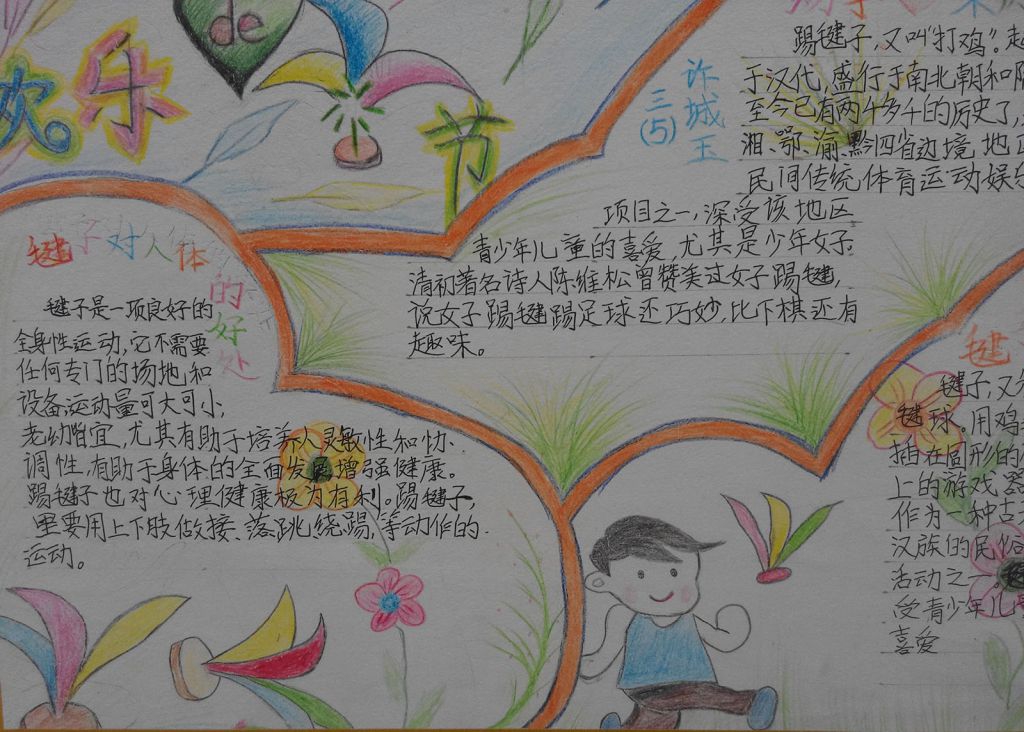 de
欢乐
节
许城玉
三(5)
踢毽子,又叫"打鸡"。起
于汉代,盛行于南北朝和隋
至今已有两千多年的历史了,
湘、鄂、渝、黔四省边境地区
民间传统体育运动娱乐
项目之一,深受该地区
青少年儿童的喜爱,尤其是少年女子
清初著名诗人陈维松曾赞美过女子踢毽,
说女子踢毽踢足球还巧妙,比下棋还有
趣味。
毽子对人体
的好处
毽子是一项良好的
全身性运动,它不需要
任何专门的场地和
设备,运动量可大可小,
老幼皆宜,尤其有助于培养人灵敏性和协
调性,有助于身体的全面发展,增强健康。
踢毽子也对心理健康极为有利。踢毽子,
里要用上下肢做接、落、跳、绕、踢,等动作的
运动。
毽
毽子,又
毽球。用鸡
插在圆形的
上的游戏器
作为一种古
汉族的民俗
活动之一。
受青少年儿
喜爱